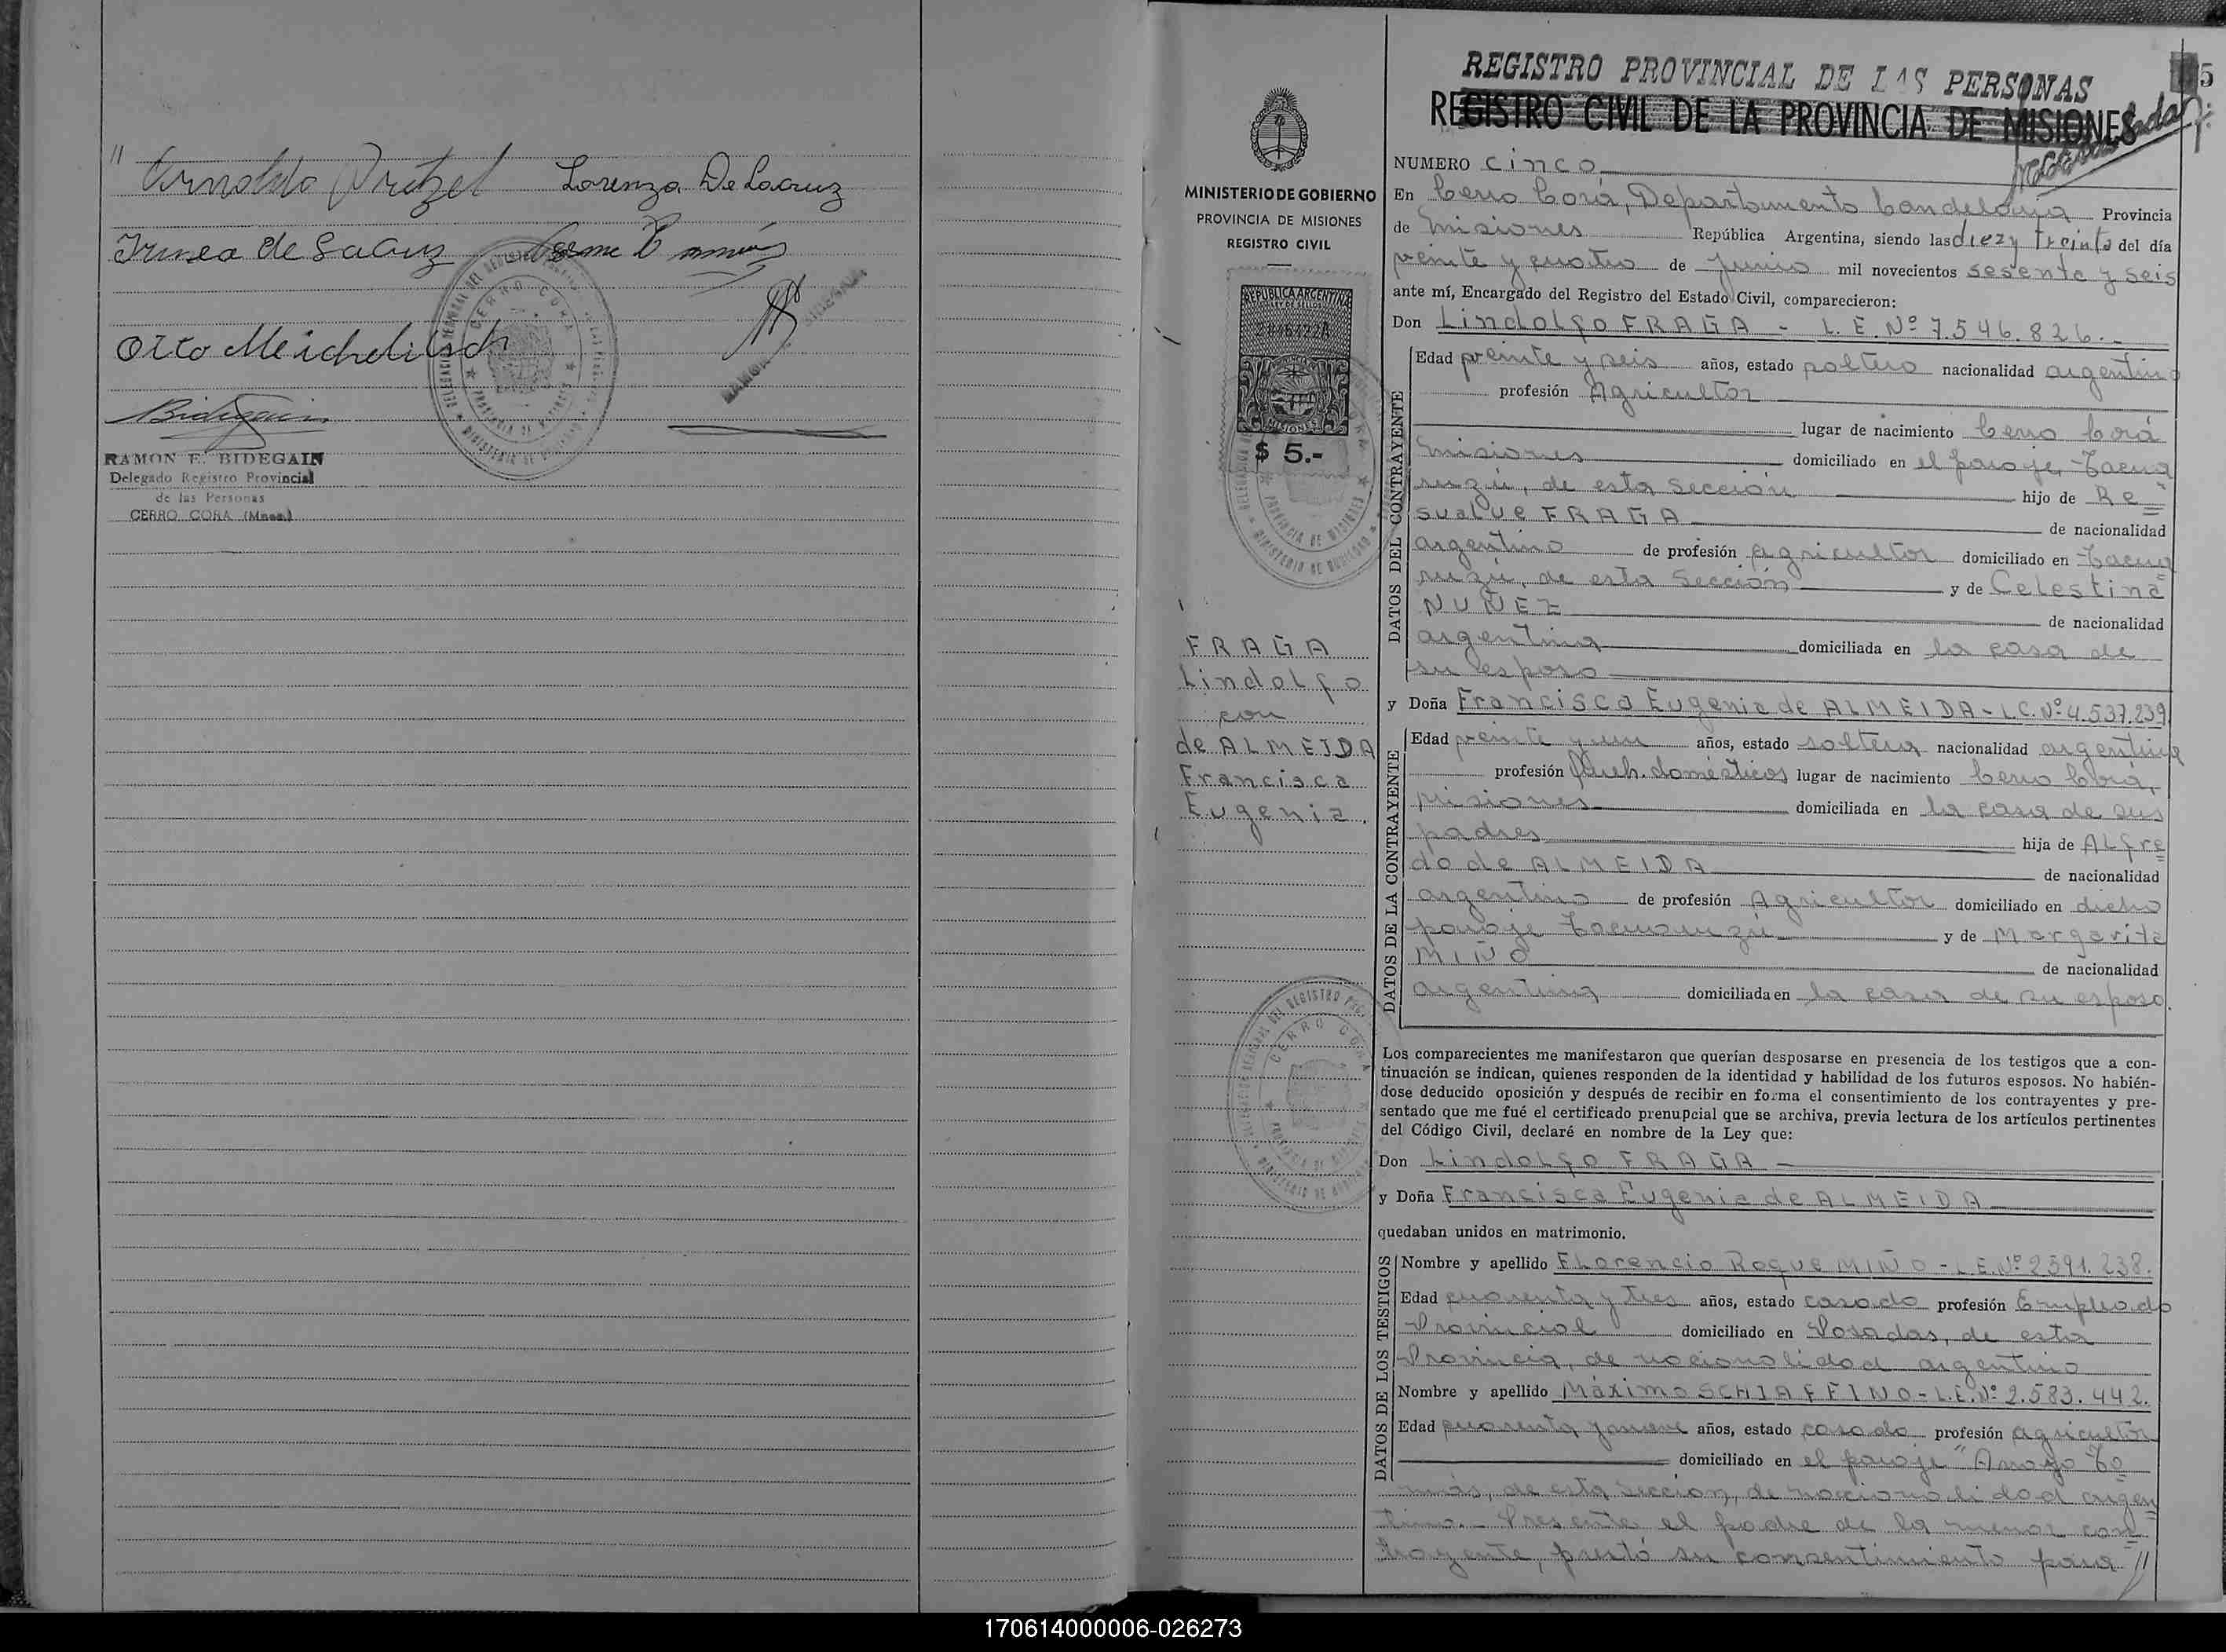 "
Arnoldo Pretzel Lorenzo De Lacruz
Irineo de Lacruz
Otto Meichelitsch
Bidegain
RAMON E. BIDEGAIN
Delegado Registro Provincial
de las Personas
CERRO CORA (Mnes.)
CERRO CORA
PROVINCIA DE MISIONES
5
REGISTRO PROVINCIAL DE LAS PERSONAS
REGISTRO CIVIL DE LA PROVINCIA DE MISIONES
MINISTERIO DE GOBIERNO
PROVINCIA DE MISIONES
REGISTRO CIVIL
REPUBLICA ARGENTINA
LEY DE SELLOS
MISIONES
$ 5.-
FRAGA
Lindolfo
con
de ALMEIDA
Francisca
Eugenia.
CERRO CORA
NUMERO cinco
En Cerro Corá, Departamento Candelaria Provincia
de Misiones República Argentina, siendo las diez y treinta del día
veinte y cuatro de Junio mil novecientos sesenta y seis
ante mí, Encargado del Registro del Estado Civil, comparecieron:
Don Lindolfo FRAGA - L. E. Nº 7.546.826.-
DATOS DEL CONTRAYENTE
Edad veinte y seis años, estado soltero nacionalidad argentino
profesión Agricultor
lugar de nacimiento Cerro Corá
Misiones domiciliado en el paraje, Tacua
ruzú, de esta Sección hijo de Re=
sualve FRAGA de nacionalidad
argentino de profesión agricultor domiciliado en Tacua
ruzú, de esta Sección y de Celestina
NUÑEZ de nacionalidad
argentina domiciliada en la casa de
su esposo
y Doña Francisca Eugenia de ALMEIDA - L.C. Nº 4.537.239
DATOS DE LA CONTRAYENTE
Edad veinte y un años, estado soltera nacionalidad argentina
profesión Queh. domésticos lugar de nacimiento Cerro Corá,
Misiones domiciliada en la casa de sus
padres hija de Alfre=
do de ALMEIDA de nacionalidad
argentino de profesión Agricultor domiciliado en dicho
paraje Tacuaruzú y de Margarita
MIÑO de nacionalidad
argentina domiciliada en la casa de su esposo.
Los comparecientes me manifestaron que querían desposarse en presencia de los testigos que a con-
tinuación se indican, quienes responden de la identidad y habilidad de los futuros esposos. No habién-
dose deducido oposición y después de recibir en forma el consentimiento de los contrayentes y pre-
sentado que me fué el certificado prenupcial que se archiva, previa lectura de los artículos pertinentes
del Código Civil, declaré en nombre de la Ley que:
Don Lindolfo FRAGA -
y Doña Francisca Eugenia de ALMEIDA
quedaban unidos en matrimonio.
DATOS DE LOS TESTIGOS
Nombre y apellido Florencio Roque MIÑO - L.E. Nº 2.591.238.
Edad cuarenta y tres años, estado casado profesión Empleado
Provincial domiciliado en Posadas, de esta
Provincia, de nacionalidad argentino
Nombre y apellido Máximo SCHIAFFINO - L.E. Nº 2.583.442.
Edad cuarenta y nueve años, estado casado profesión agricultor
domiciliado en el paraje "Arroyo To=
más, de esta Sección, de nacionalidad argen=
tino.- Presente el padre de la menor con=
trayente, prestó su consentimiento para //
170614000006-026273